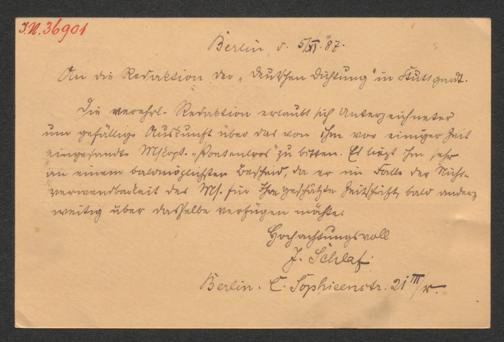 I.N. 36901
Berlin, d. 5/XI 87.
An die Redaktion der „Deutschen Dichtung" in Stuttgart.
Die verehrl. Redaktion erlaubt sich Unterzeichneter
um gefällige Auskunft über das von ihm vor einiger Zeit
eingesandte Mskpt. zu bitten. Es liegt ihm sehr
an einem baldmöglichsten Bescheid, da er im Falle der Nicht-
verwendbarkeit des Ms. für Ihre geschätzte Zeitschrift, bald ander-
weitig über dasselbe verfügen möchte.
Hochachtungsvoll
J. Schlaf
Berlin. C. Sophieenstr. 21 III/r.